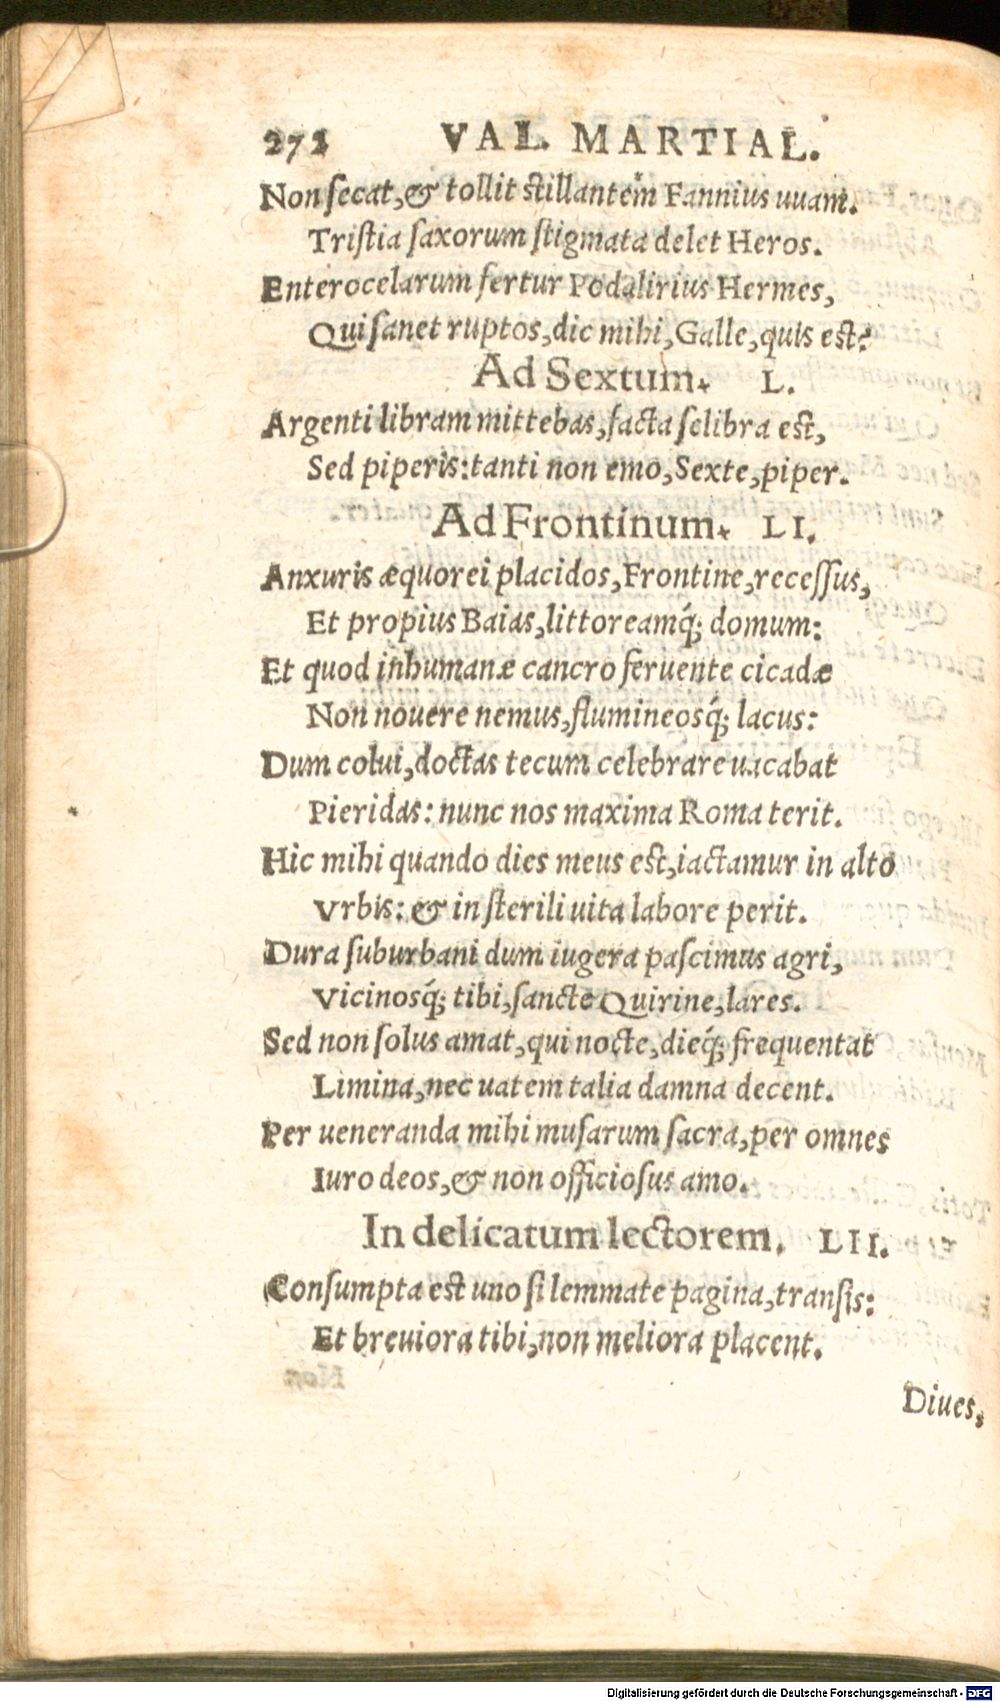 272 VAL. MARTIAL.
Non ſecat, & tollit stillantem Fannius uuam.
Triſtia ſaxorum ſtigmata delet Heros.
Enterocelarum fertur Podalirius Hermes,
Qui ſanet ruptos, dic mihi, Galle, quis est?
Ad Sextum. L.
Argenti libram mittebas, facta ſelibra est,
Sed piperis: tanti non emo, Sexte, piper.
Ad Frontinum. LI.
Anxuris æquorei placidos, Frontine, receſſus,
Et propius Baias, littoreamq́; domum:
Et quod inhumanæ cancro feruente cicadæ
Non nouere nemus, flumineosq́; lacus:
Dum colui, doctas tecum celebrare uacabat
Pieridas: nunc nos maxima Roma terit.
Hic mihi quando dies meus est, iactamur in alto
Vrbis: & in ſterili uita labore perit.
Dura ſuburbani dum iugera paſcimus agri,
Vicinosq́; tibi, ſancte Quirine, lares.
Sed non ſolus amat, qui nocte, dieq́; frequentat
Limina, nec uatem talia damna decent.
Per ueneranda mihi muſarum ſacra, per omnes
Iuro deos, & non officioſus amo.
In delicatum lectorem. LII.
Conſumpta est uno ſi lemmate pagina, tranſis:
Et breuiora tibi, non meliora placent.
Diues,
Digitalisierung gefördert durch die Deutsche Forschungsgemeinschaft - DFG